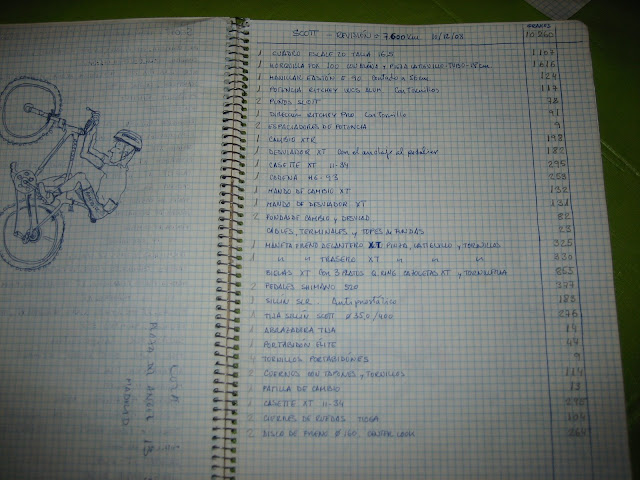 SCOTT - REVISION = 7.600 Km 11/12/08 GRAMOS
10.260
1 CUADRO ESCALE 20 TALLA 16,5 1,107
1 HORQUILLA FOX 100 1,616
1 MANILLAR EASTON E 90 Cortado a 56 cm. 124
1 POTENCIA RITCHEY WCS ALUM. Con Tornillos 117
2 PUÑOS SCOTT 78
1 DIRECCION RITCHEY PRO Con Tornillo 91
2 ESPACIADORES DE POTENCIA 9
1 CAMBIO XTR 198
1 DESVIADOR XT Con el anclaje al 182
1 CASETE XT 11-34 295
1 CADENA HG-93 289
1 MANDO DE CAMBIO XT 132
1 MANDO DE DESVIADOR XT 131
2 FUNDAS DE CAMBIO y DESVIAD 82
CABLES, TERMINALES y TOPES DE FUNDAS 23
1 MANETA FRENO DELANTERO XT PINZA, LATIGUILLO y TORNILLOS 325
1 " " TRASERO XT " " " 330
BIELAS XT CON 3 PLATOS Q. RING CAZOLETAS XT y TORNILLERIA 865
2 PEDALES SHIMANO 520 377
1 SILLIN SLR. Antiprostático 183
1 TIJA SILLIN SCOTT Ø 35,0/400 276
1 ABRAZADERA TIJA 14
1 PORTABIDON ELITE 47
4 TORNILLOS PORTABIDONES 9
2 CUERNOS CON TAPONES y TORNILLOS 114
1 PATILLA DE CAMBIO 13
1 CASETE XT 11-34 295
2 CIERRES DE RUEDAS TIOGA 104
2 DISCO DE FRENO Ø 160 CENTER LOCK 264
PLAZA DEL ANGEL 13
MADRID